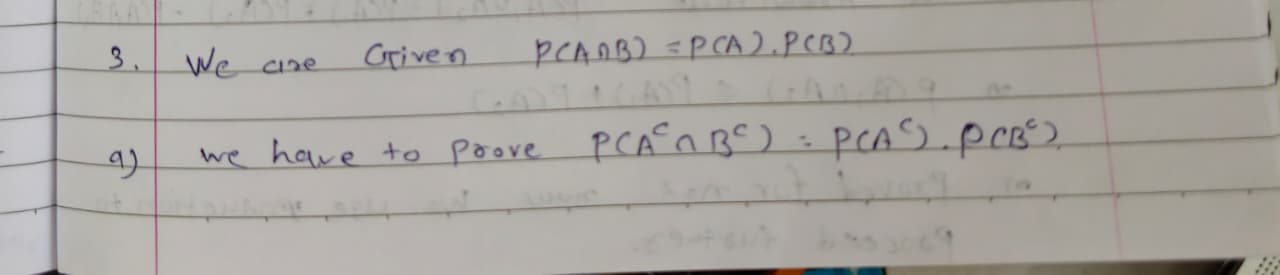 3. We are Given P(A∩B) = P(A).P(B)
a) we have to prove P(Aᶜ∩Bᶜ) = P(Aᶜ).P(Bᶜ).